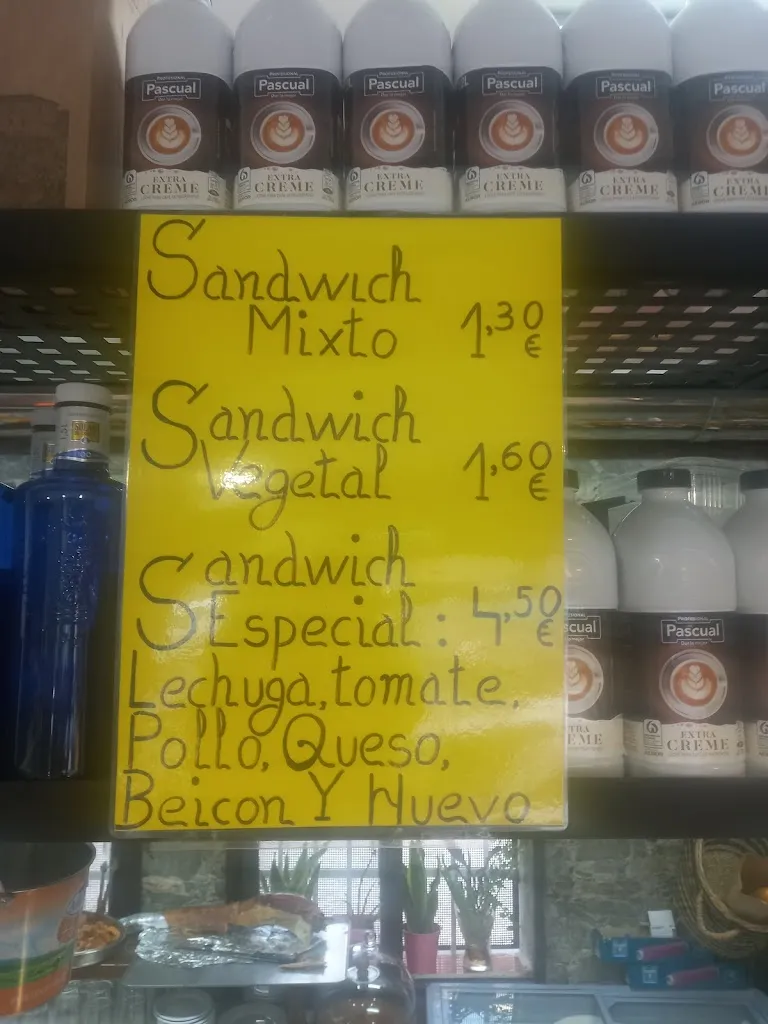 Pascual Pascual Pascual Pascual Pascual Pascual
EXTRA EXTRA EXTRA EXTRA EXTRA EXTRA
CREME CREME CREME CREME CREME CREM
Sandwich
Mixto 1,30 €
Sandwich
Vegetal 1,60 €
Sandwich
Especial: 4,50 €
Lechuga, tomate,
Pollo, Queso,
Beicon Y Huevo
scual Pascual
EXTRA
EME CREME